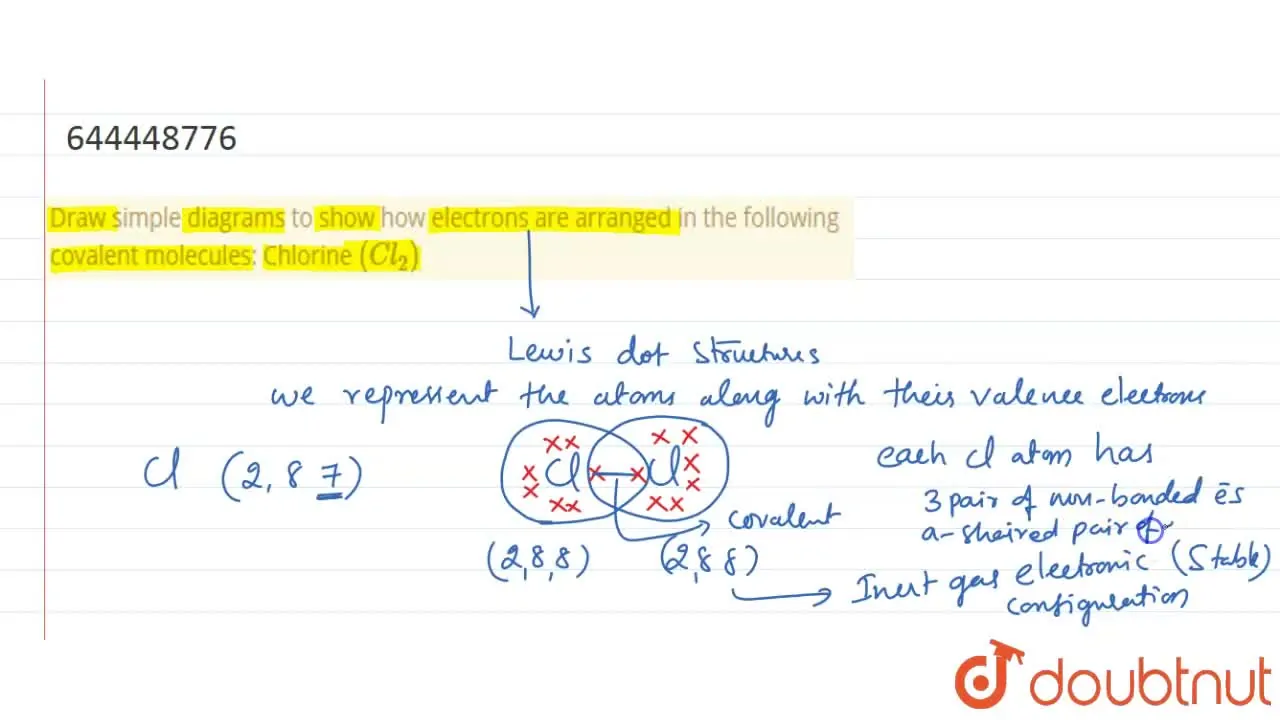 644448776
Draw simple diagrams to show how electrons are arranged in the following
covalent molecules: Chlorine (Cl₂)
Lewis dot structures
we repressent the atoms along with theis valence electrons
Cl (2, 8 7)
xx Cl x x xx x—x Cl x x x x xx
each cl atom has
3 pair of non-bonded ēs
a-shaired pair of
covalent
(2,8,8) (2,8 8)
Inert gas electronic (Stable)
configuration
doubtnut